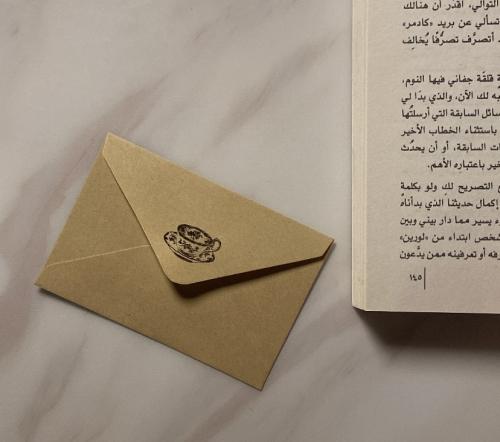 التوالي، أقدّر أن هنالك
تسألي عن بريد «كادمر»
أتصرَّف تصرُّفًا يُخالِف
قلقة جفاني فيها النوم،
به لك الآن، والذي بدَا لي
سائل السابقة التي أرسلتُها
باستثناء الخطاب الأخير
ات السابقة، أو أن يحدُث
خير باعتباره الأهم.
التصريح لكِ ولو بكلمة
إكمال حديثنا الذي بدأناهُ
يسير مما دار بيني وبين
شخص ابتداء من «لورين»
فه أو تعرفينه ممن يدَّعون
١٤٥